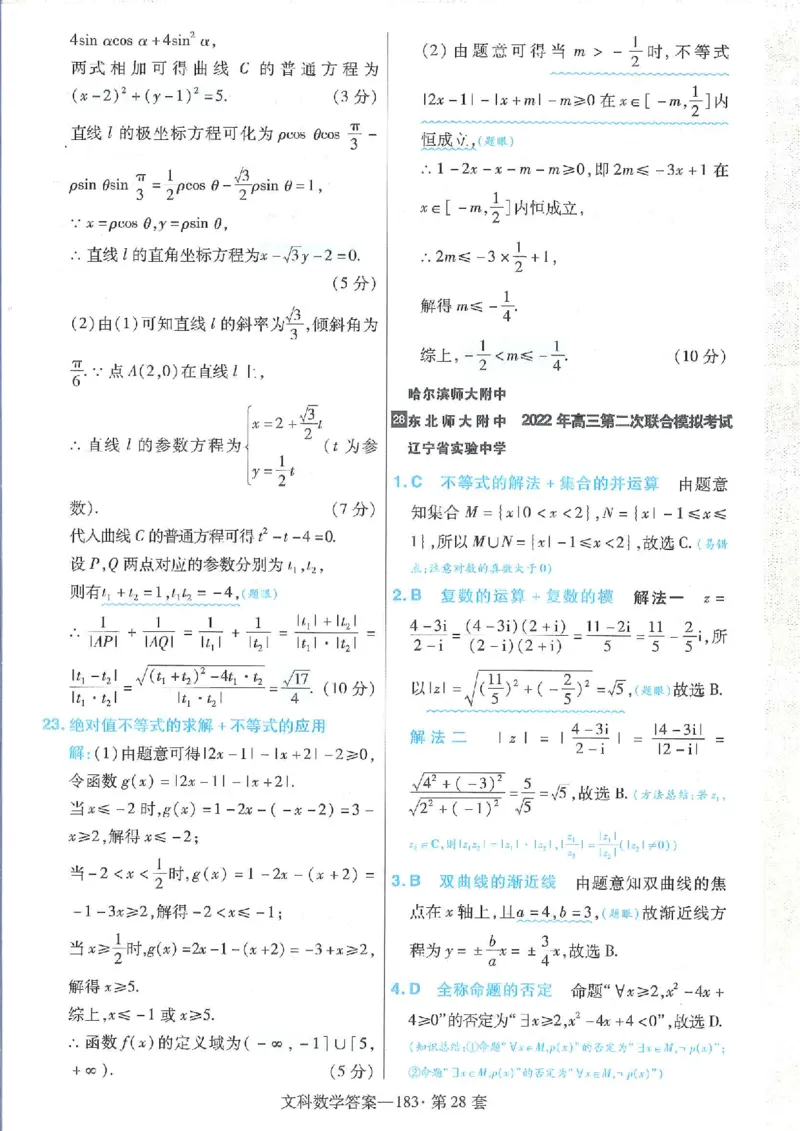 4sin αcos α+4sin² α,
两式相加可得曲线 C 的普通方程为
(x-2)²+(y-1)²=5. (3分)
直线 l 的极坐标方程可化为 ρcos θcos π/3 -
ρsin θsin π/3 = 1/2 ρcos θ - √3/2 ρsin θ=1,
∵ x=ρcos θ,y=ρsin θ,
∴ 直线 l 的直角坐标方程为x-√3y-2=0.
(5分)
(2)由(1)可知直线 l 的斜率为√3/3,倾斜角为
π/6.∵点A(2,0)在直线 l 上,
∴ 直线 l 的参数方程为{x=2+√3/2 t, y=1/2 t (t 为参
数). (7分)
代入曲线C的普通方程可得t²-t-4=0.
设P,Q两点对应的参数分别为t₁,t₂,
则有t₁+t₂=1,t₁t₂=-4,(题眼)
∴ 1/|AP| + 1/|AQ| = 1/|t₁| + 1/|t₂| = (|t₁|+|t₂|)/(|t₁|·|t₂|) =
|t₁-t₂|/|t₁·t₂| = √((t₁+t₂)²-4t₁·t₂)/|t₁·t₂| = √17/4. (10分)
23. 绝对值不等式的求解+不等式的应用
解:(1)由题意可得|2x-1|-|x+2|-2≥0,
令函数g(x)=|2x-1|-|x+2|.
当x≤-2时,g(x)=1-2x-(-x-2)=3-
x≥2,解得x≤-2;
当-2<x<1/2时,g(x)=1-2x-(x+2)=
-1-3x≥2,解得-2<x≤-1;
当x≥1/2时,g(x)=2x-1-(x+2)=-3+x≥2,
解得x≥5.
综上,x≤-1或x≥5.
∴ 函数f(x)的定义域为(-∞,-1]∪[5,
+∞). (5分)
(2)由题意可得当 m > -1/2 时,不等式
|2x-1|-|x+m|-m≥0在x∈[-m,1/2]内
恒成立,(题眼)
∴ 1-2x-x-m-m≥0,即2m≤-3x+1在
x∈[-m,1/2]内恒成立,
∴ 2m≤-3×1/2+1,
解得m≤-1/4.
综上,-1/2<m≤-1/4. (10分)
哈尔滨师大附中
28 东北师大附中 2022年高三第二次联合模拟考试
辽宁省实验中学
1. C 不等式的解法+集合的并运算 由题意
知集合M={x|0<x<2},N={x|-1≤x≤
1},所以M∪N={x|-1≤x<2},故选C.(易错
点:注意对数的真数大于0)
2. B 复数的运算+复数的模 解法一 z=
(4-3i)/(2-i) = (4-3i)(2+i)/((2-i)(2+i)) = (11-2i)/5 = 11/5 - 2/5 i,所
以|z|=√((11/5)²+(-2/5)²)=√5,(题眼)故选B.
解法二 |z|=|(4-3i)/(2-i)|=|4-3i|/|2-i|=
√(4²+(-3)²)/√(2²+(-1)²)=5/√5=√5,故选B.(方法总结:若z₁,
z₂∈C,则|z₁z₂|=|z₁|·|z₂|,|z₁/z₂|=|z₁|/|z₂|(|z₂|≠0))
3. B 双曲线的渐近线 由题意知双曲线的焦
点在x轴上,且a=4,b=3,(题眼)故渐近线方
程为y=±b/a x=±3/4 x,故选B.
4. D 全称命题的否定 命题“∀x≥2,x²-4x+
4≥0”的否定为“∃x≥2,x²-4x+4<0”,故选D.
(知识总结:①命题“∀x∈M,p(x)”的否定为“∃x∈M,¬p(x)”;
②命题“∃x∈M,p(x)”的否定为“∀x∈M,¬p(x)”)
文科数学答案—183·第28套